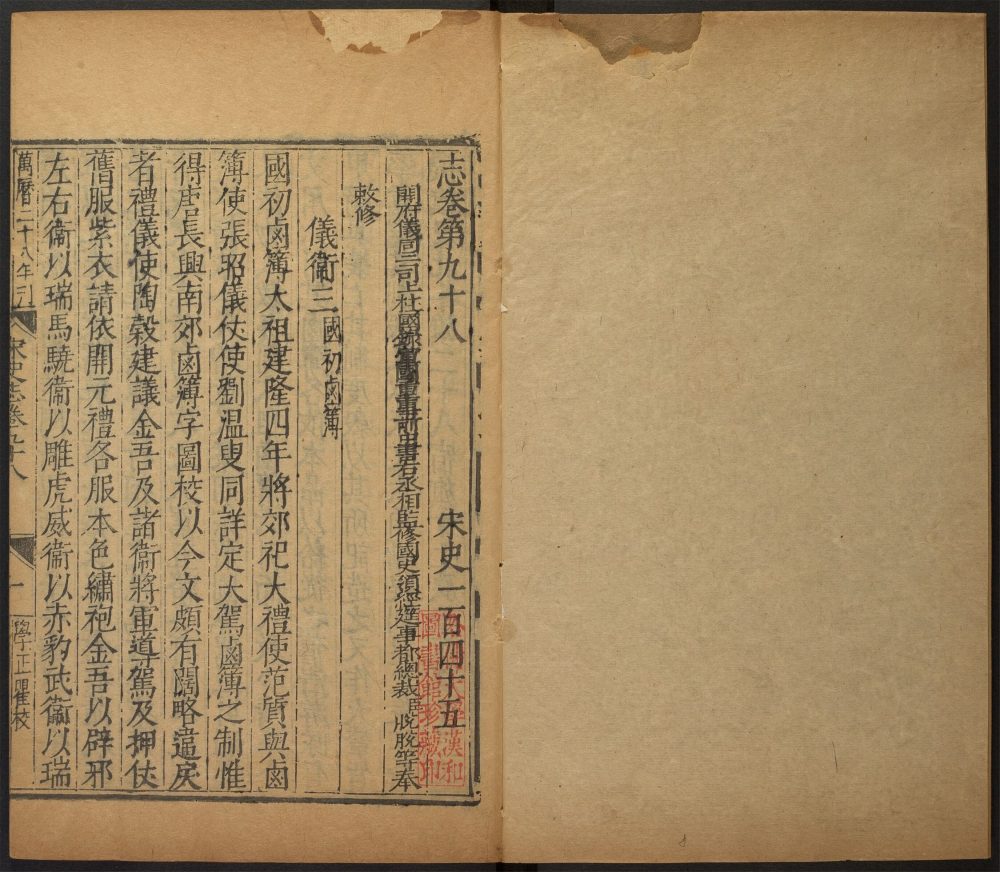 志卷第九十八 宋史一百四十五
開府儀同三司上柱國錄軍國重事前中書右丞相監修國史領經筵事都總裁臣脫脫等奉
敕修
儀衛三 國初鹵簿
國初鹵簿太祖建隆四年將郊祀大禮使范質與鹵
簿使張昭儀仗使劉溫叟同詳定大駕鹵簿之制惟
得唐長興南郊鹵簿字圖校以今文頗有闊略違戾
者禮儀使陶穀建議金吾及諸衛將軍導駕及押仗
舊服紫衣請依開元禮各服本色繡袍金吾以辟邪
左右衛以瑞馬驍衛以雕虎威衛以赤豹武衛以瑞
萬曆二十八年刊
宋史志卷九十八
一
學正瞿校
圖書館珍藏印
漢和